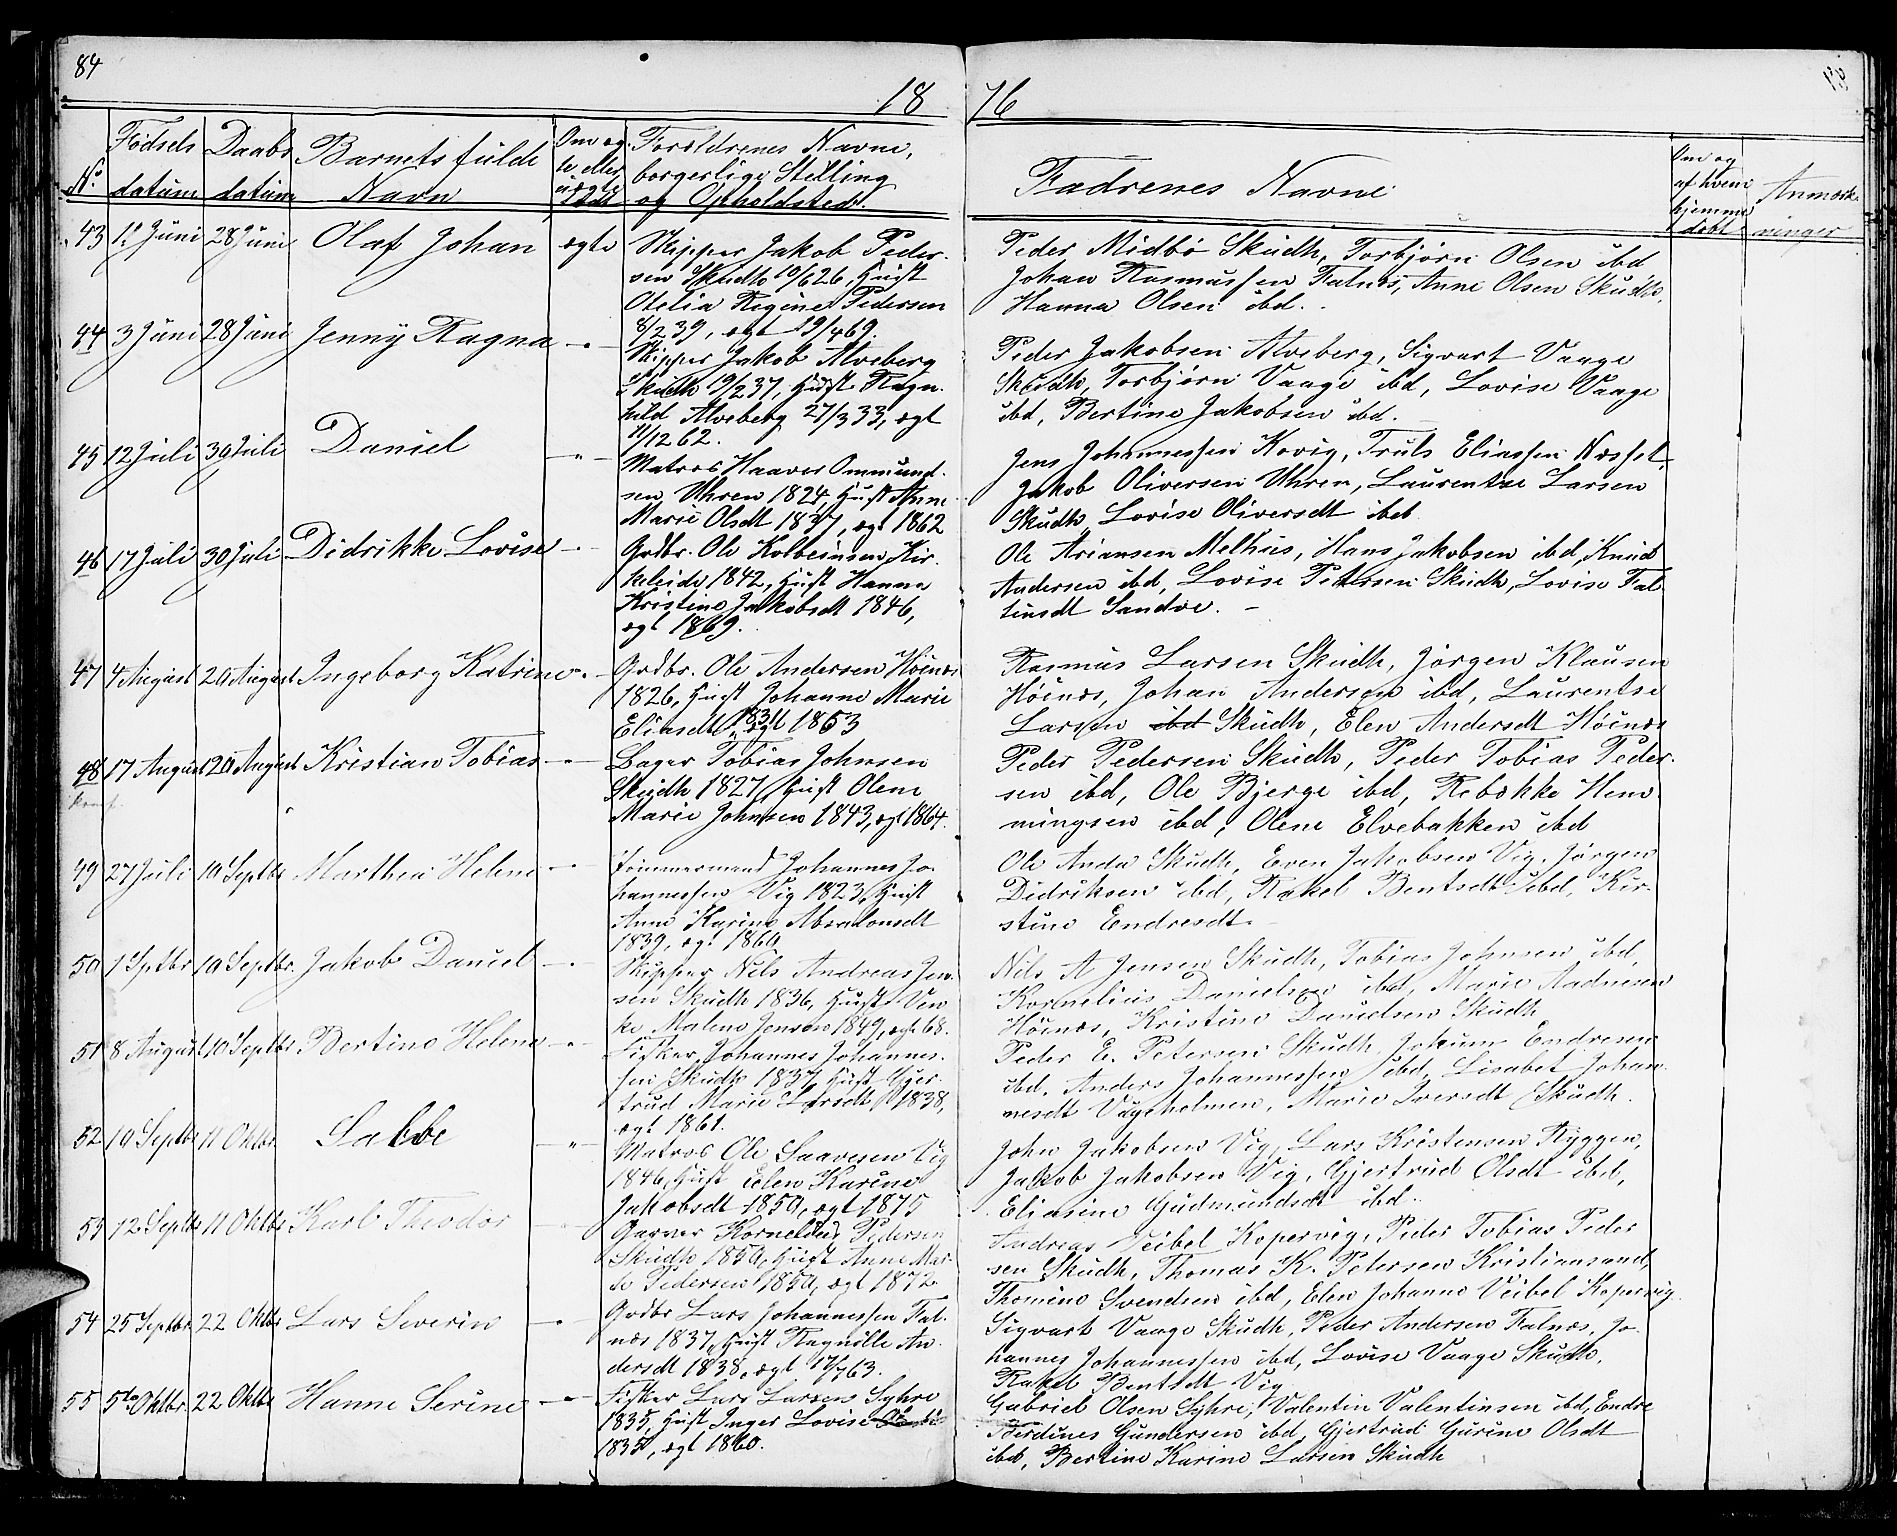 84
18 76
No.
Fødsels
datum
Daabs
datum
Barnets fulde
Navn
Om æg-
te eller
uægte
født
Forældrenes Navne,
borgerlige Stilling
og Opholdsted.
Fadrenes Navne
Om og
af hvem
hjemme
døbt
Anmærk-
ninger
43 1. Juni 28 Juni Olaf Johan ægte
Skipper Jakob Peder-
sen Skudh 10/6 26, Hust
Otelia Regine Pedersen
8/2 39, ægt 19/4 69.
Peder Midbø Skudh, Torbjørn Olsen ibd
Johan Rasmussen Falnæs, Anne Olsen Skudh,
Hanna Olsen ibd.
44 3 Juni 28 Juni Jenny Ragna -"-
Skipper Jakob Alveberg
Skudh 19/2 37, Hust Ragn-
hild Alveberg 27/3 33, ægt
11/12 62.
Peder Jakobsen Alveberg, Sigvart Vaage
Skudh, Torbjørn Vaage ibd, Lovise Vaage
ibd, Bertine Jakobsen ibd.
45 12 Juli 30 Juli Daniel -"-
Matros Haaver Ommund-
sen Uhren 1824, Hust Anne
Marie Olsdt 1837, ægt 1862
Jens Johannessen Kovig, Truls Eliassen Næsset,
Jakob Oliversen Uhren, Laurentse Larsen
Skudh, Lovise Oliversdt ibd
46 17 Juli 30 Juli Didrikke Lovise -"-
Grdbr. Ole Kolbeinsen Kir-
keleide 1842, Hust Hanna
Kristine Jakobsdt 1846,
ægt 1869.
Ole Ariansen Melhus, Hans Jakobsen ibd, Knud
Andersen ibd, Lovise Petersen Skudh, Lovise Fal-
tinsdt Sandve.
47 4 August 20 August Ingeborg Katrine -"-
Grdbr. Ole Andersen Høinæs
1826, Hust Johanne Marie
Eliasdt 1831 ægt 1853
Rasmus Larsen Skudh, Jørgen Klausen
Høinæs, Johan Andersen ibd, Laurentse
Larsen ibd Skudh, Elen Andersdt Høinæs
48 17 August 20 August Kristian Tobias -"-
konf.
Bager Tobias Johnsen
Skudh 1827, Hust Olene
Marie Johnsen 1843, ægt 1864.
Peder Pedersen Skudh, Peder Tobias Peder-
sen ibd, Ole Bjerge ibd, Rebekke Hem-
mingsen ibd, Olene Elvebakken ibd
49 27 Juli 10 Septbr Marthea Helene -"-
Tømmermand Johannes Jo-
hannessen Vig 1823, Hust
Anne Karine Absalonsdt
1839, ægt 1860
Ole Anda Skudh, Even Jakobsen Vig, Jørgen
Didriksen ibd, Rakel Bentsdt ibd, Kir-
stine Endresdt.
50 1 Sptbr 10 Septbr. Jakob Daniel -"-
Skipper Nils Andreas Jen-
sen Skudh 1836, Hust Ven-
ke Malene Jensen 1849, ægt 68.
Nils A Jensen Skudh, Tobias Johnsen ibd,
Kornelius Danielsen ibd, Marie Aadnesen
Høinæs, Kristine Danielsen Skudh
51 8 August 10 Septbr Bertine Helene -"-
Fisker Johannes Johannes-
sen Skudh 1837, Hust Gjer-
trud Marie Larsdt 1838,
ægt 1861.
Peder E. Petersen Skudh, Endresen
ibd, Anders Johannessen ibd, Lisabet Johan-
nesdt Vaageholmen, Marie Iversdt Skudh.
52 10 Septbr 11 Oktbr. Salve -"-
Matros Ole Saavesen Vig
1846, Hust Elen Karine
Jakobsdt 1850, ægt 1875
John Jakobsen Vig, Lars Kristensen Ryggen,
Jakob Jakobsen Vig, Gjertrud Olsdt ibd,
Eliasine Gudmundsdt ibd.
53 12 Septbr 11 Oktbr Karl Theodor -"-
Garver Kornelius Pedersen
Skudh 1850, Hust Anne Mar-
te Pedersen 1850, ægt 1872
Andreas Veibel Kopervig, Peder Tobias Peder-
sen Skudh, Thomas K. Petersen Kristiansand,
Thomine Svendsen ibd, Elen Johanne Veibel Kopervig.
54 25 Septbr. 22 Oktbr Lars Severin -"-
Grdbr Lars Johannessen Fal-
næs 1837, Hust Ragnille An-
dersdt 1838, ægt 17/7 63.
Sigvart Vaage Skudh, Peder Andersen Falnæs, Jo-
hannes Johannessen ibd, Lovise Vaage Skudh,
Rakel Bentsdt Vig
55 5te Oktbr. 22 Oktbr Hanne Serine -"-
Fisker Lars Larsen Syhre
1835, Hust Inger Lovise
1835, ægt 1860.
Gabriel Olsen Syhre, Valentin Valentinsen ibd, Endre
Berdines Gundersen ibd, Gjertrud Gurine Olsdt
ibd, Bertine Karine Larsen Skudh